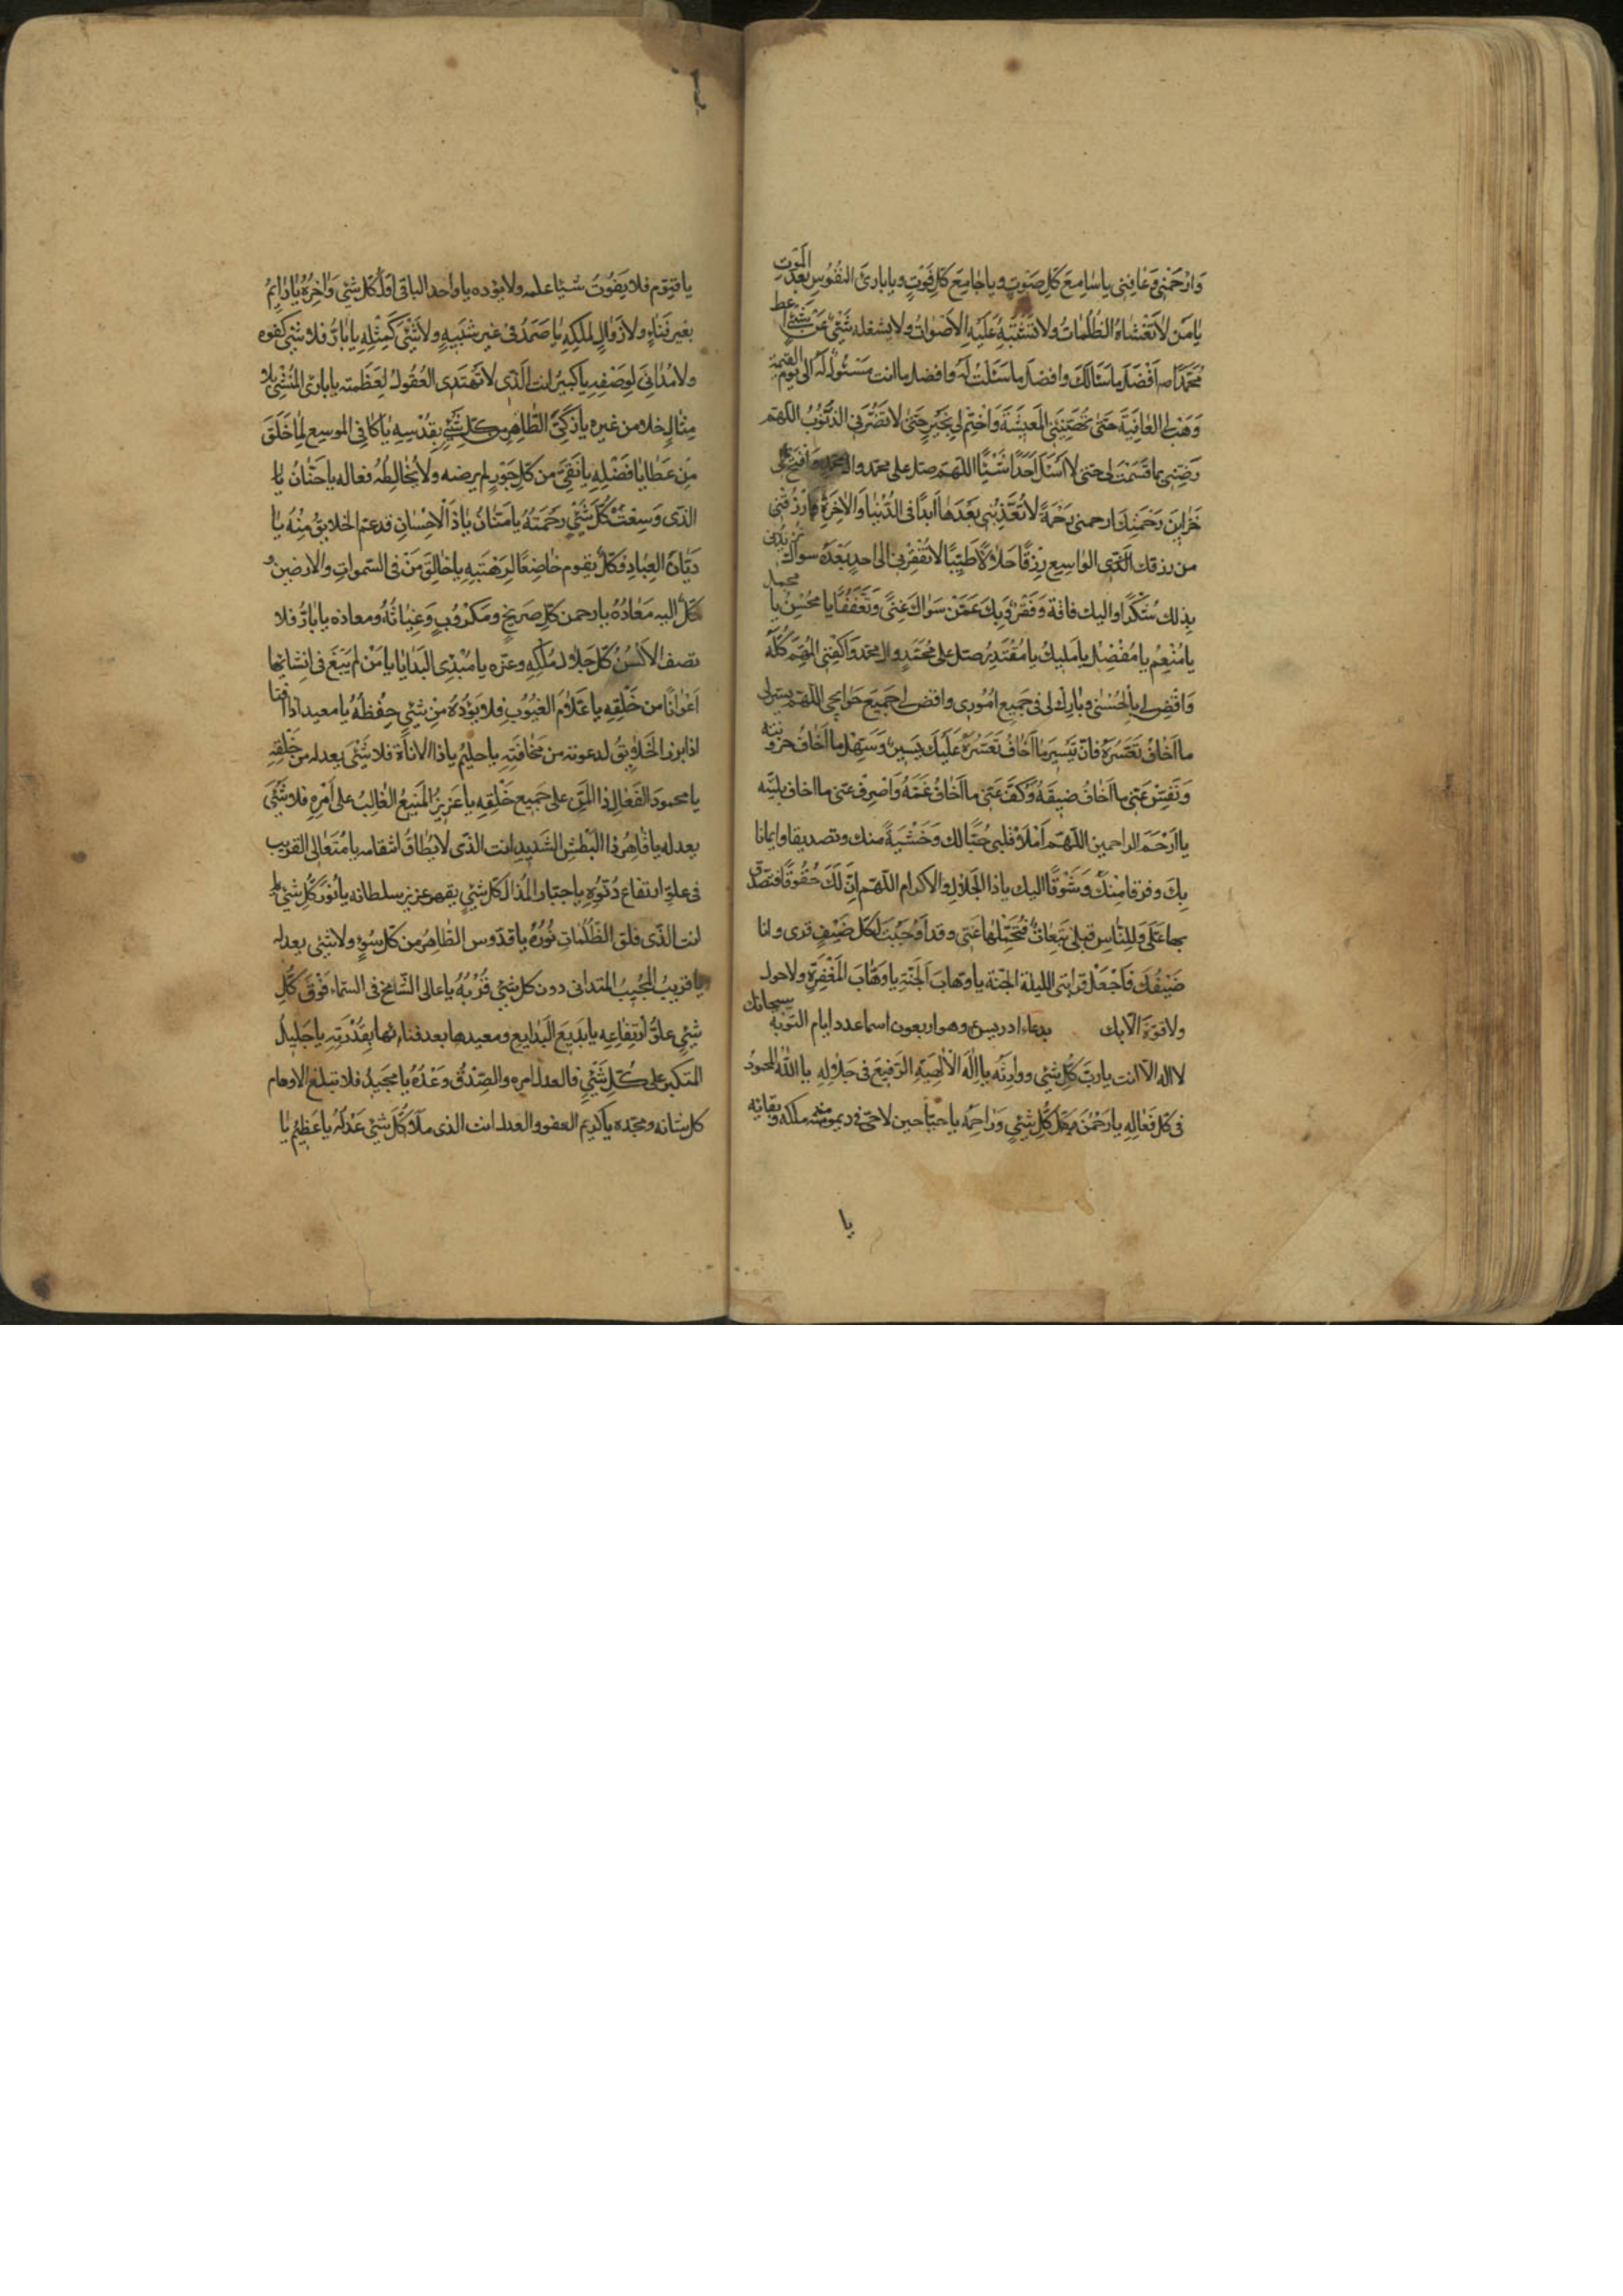 وَارْحَمْنِی وَعَافِنِی یا سَامِعَ کُلِّ صَوْتٍ ویا جَامِعَ کُلِّ فَوْتٍ ویا بارِئَ النُّفُوسِ بَعْدَ الْمَوْتِ
یا مَن لا تَغْشَاهُ الظُّلُمَاتُ ولا تَشْتَبِهُ عَلَیْهِ الاَصْوَاتُ ولا یشغله شَیْئٌ عَنْ شَیْئٍ اعط
مُحَمَّدًا ص اَفْضَلَ ما سَأَلَكَ وافضلَ ما سَئَلْتُ لَهُ وافضل ما انت مَسْئُولٌ لَهُ الی یوم القیمة
وَهَبْ لِی العَافِیَةَ حَتّی تُهَنِّئَنِی المَعِیشَةَ وَاخْتِمْ لِی بِخَیْرٍ حَتّی لا تَضُرَّنِی الذُّنُوبُ اللهم
رَضِّنِی بما قَسَمْتَ لی حتی لا اَسْئَلَ اَحَدًا شَیْئًا اللهم صل علی محمد وال محمد وَافْتَحْ لِی
خَزَاینَ رَحْمَتِكَ ارحمنی رَحْمَةً لا تُعَذِّبُنِی بَعْدَهَا اَبدًا فی الدُّنْیَا وَالاخِرَةِ وَارْزُقْنِی
من رزقك الَّذی الواسِعِ رِزْقًا حَلَالًا طَیِّبًا لا تُفْقِرُنِی الی احدٍ بَعْدَهُ سواك تزیدنی
بِذلك شُکْرًا والیك فاقة وَفَقْرًا وَبِكَ عَمَّنْ سَوَاكَ غِنًی وَتَعَفُّفًا یا مُحْسِنُ یا مجمل
یا مُنْعِمُ یا مُفْضِلُ یا مَلِیكُ یا مُقْتَدِرُ صَل علی مُحَمَّدٍ وال محمد وَاکْفِنِی المُهِمَّ کُلَّهُ
وَاقْضِ لِی بِالْحُسْنَی وَبَارِكْ لی فی جَمِیعِ اُمُورِی واقض لِی جَمِیعَ حَوَایجِی اللهم یسر لی
ما اَخَافُ تَعَسُّرَهُ فَاِنَّ تَیْسِیرَ ما اَخَافُ تَعَسُّرَهُ عَلَیْكَ یَسِیرٌ وَسَهِّلْ ما اَخَافُ حزونته
وَنَفِّسْ عَنِّی ما اَخَافُ ضِیقَهُ وَکُفَّ عَنِّی ما اَخَافُ غَمَّهُ وَاصْرِفْ عنی ما اخاف بلیته
یا اَرْحَمَ الراحمین اللهم اَمْلَأْ قلبی حُبًّا لك وَخَشْیَةً منك وتصدیقا وایمانا
بِكَ وفرقا مِنْكَ وَشَوْقًا الیك یا ذا الجَلَالِ والاکرام اللهم اِنَّ لَكَ حُقُوقًا فتصدق
بها عَلَیَّ وَلِلنَّاسِ قبلی تَبِعَاتٌ فَتَحَمَّلْهَا عَنِّی وقد اَوْجَبْتَ لِکُلِّ ضَیْفٍ قری وانا
ضَیْفُكَ فَاجْعَلْ قرایَ اللیلة الجنة یا وهابَ الجَنَّةِ یا وَهَّابَ المَغْفِرَةِ ولا حول
ولا قوة الا بك دعاء ادریس ع وهو اربعون اسما عدد ایام التوبة سبحانك
لا اله الا انت یا ربَّ کُلِّ شیئٍ ووارثه یا اِلٰهَ الالِهَةِ الرَّفِیعَ فی جَلَالِهِ یا اللهُ المحمودُ
فی کل فعَالِهِ یا رَحْمٰنَ کُلِّ شَیْئٍ وَرَاحِمَهُ یا حیا حین لا حی فی دیمومة ملکه وبقائه
یا
یا قیوم فلا یَفُوتُ شَیْئًا علمه ولا یؤده یا واحد الباقی اَوَّلَ کُلِّ شَیْئٍ وَاخِرَهُ یا دَایِمُ
بغیر فَنَاءٍ ولا زَوَالٍ لملکِهِ یا صَمَدُ فی غیر شَبِیهٍ ولا شَیْئَ کَمِثْلِهِ یا بارُّ فلا شیئ کفوه
ولا مُدَانِیَ لِوَصْفِهِ یا کَبیرُ انت الَّذی لا تَهْتَدِی العُقُولُ لِعَظَمَتِهِ یا بارئ المُنْشِئُ بلا
مِثَالٍ خلا من غیره یا زَکِیُّ الطَّاهِرُ من کُلِّ شَیْئٍ بِقُدْسِهِ یا کَافِی الموسع لِمَا خَلَقَ
مِنْ عَطَایَا فَضْلِهِ یا نَقِیُّ مِن کُلِّ جَوْرٍ لم یرضه ولا یُخَالِطْهُ فعاله یا حَنَّانُ یا
الذی وَسِعَتْ کُلَّ شَیْئٍ رَحْمَتُهُ یا مَنَّانُ یا ذَا الْاِحْسَانِ قد عم الخلایق مِنْهُ یا
دَیَّانَ العِبَادِ فَکُلٌّ یقوم خَاضِعًا لِرَهْبَتِهِ یا خَالِقَ مَنْ فی السَّمواتِ والارضین و
کُلٌّ الیه مَعَادُهُ یا رحمن کُلِّ صَرِیخٍ وَمَکْرُوبٍ وَغِیَاثَهُ ومعاذه یا بَارُّ فلا
تصف الاَلْسُنُ کُلَّ جَلَالِ مُلْکِهِ وعزه یا مُبْدِئَ البَدَایَا یا مَنْ لم یَبْغِ فی اِنْشَائِهَا
اَعْوَانًا من خَلْقِهِ یا عَلَّامَ الغُیُوبِ فلا یَؤُدُهُ مِنْ شیئٍ حِفْظُهُ یا معیدا اذا افنا
اذا برز الخَلَایِقُ لدعوته من مَخَافَتِهِ یا حلیمُ یا ذا الاناة فلا شَیْئَ یعدله من خَلْقِهِ
یا محمودَ الفَعَالِ ذا المَنِّ علی جَمِیعِ خَلْقِهِ یا عَزِیزُ المَنِیعُ الغالِبُ علی اَمْرِهِ فلا شَیْئَ
یعدله یا قَاهِرُ ذا البَطْشِ الشَّدِیدِ انت الذی لا یُطَاقُ انتقامه یا مُتَعَالِی القریب
فی علو ارتفاع دُنُوِّهِ یا جبَّار المُذِلَّ کلَّ شیئٍ بقهر عزیز سلطانه یا نُورَ کُلِّ شَیْئٍ
انت الذی فلق الظُّلُمَاتِ نُورُهُ یا قدوس الطَّاهِرُ من کُلِّ سُوءٍ ولا شیئ یعدله
یا قریبُ المُجِیبُ المتدانی دون کل شیئ قُرْبُهُ یا عالی الشَّامِخُ فی السماء فَوْقَ کُلِّ
شیئٍ علوُّ ارْتِفَاعِهِ یا بَدِیعَ البَدَایِعِ ومعیدها بعد فنائها بِقُدْرَتِهِ یا جَلِیلُ
المتکبر علی کُلِّ شَیْئٍ فالعدل امره والصِّدْقُ وَعْدُهُ یا مَجِیدُ فلا تبلغ الاوهام
کل شانه ومجده یا کریم العفو والعدل انت الذی مَلَأَ کُلَّ شیئ عَدْلُهُ یا عَظِیمُ یا